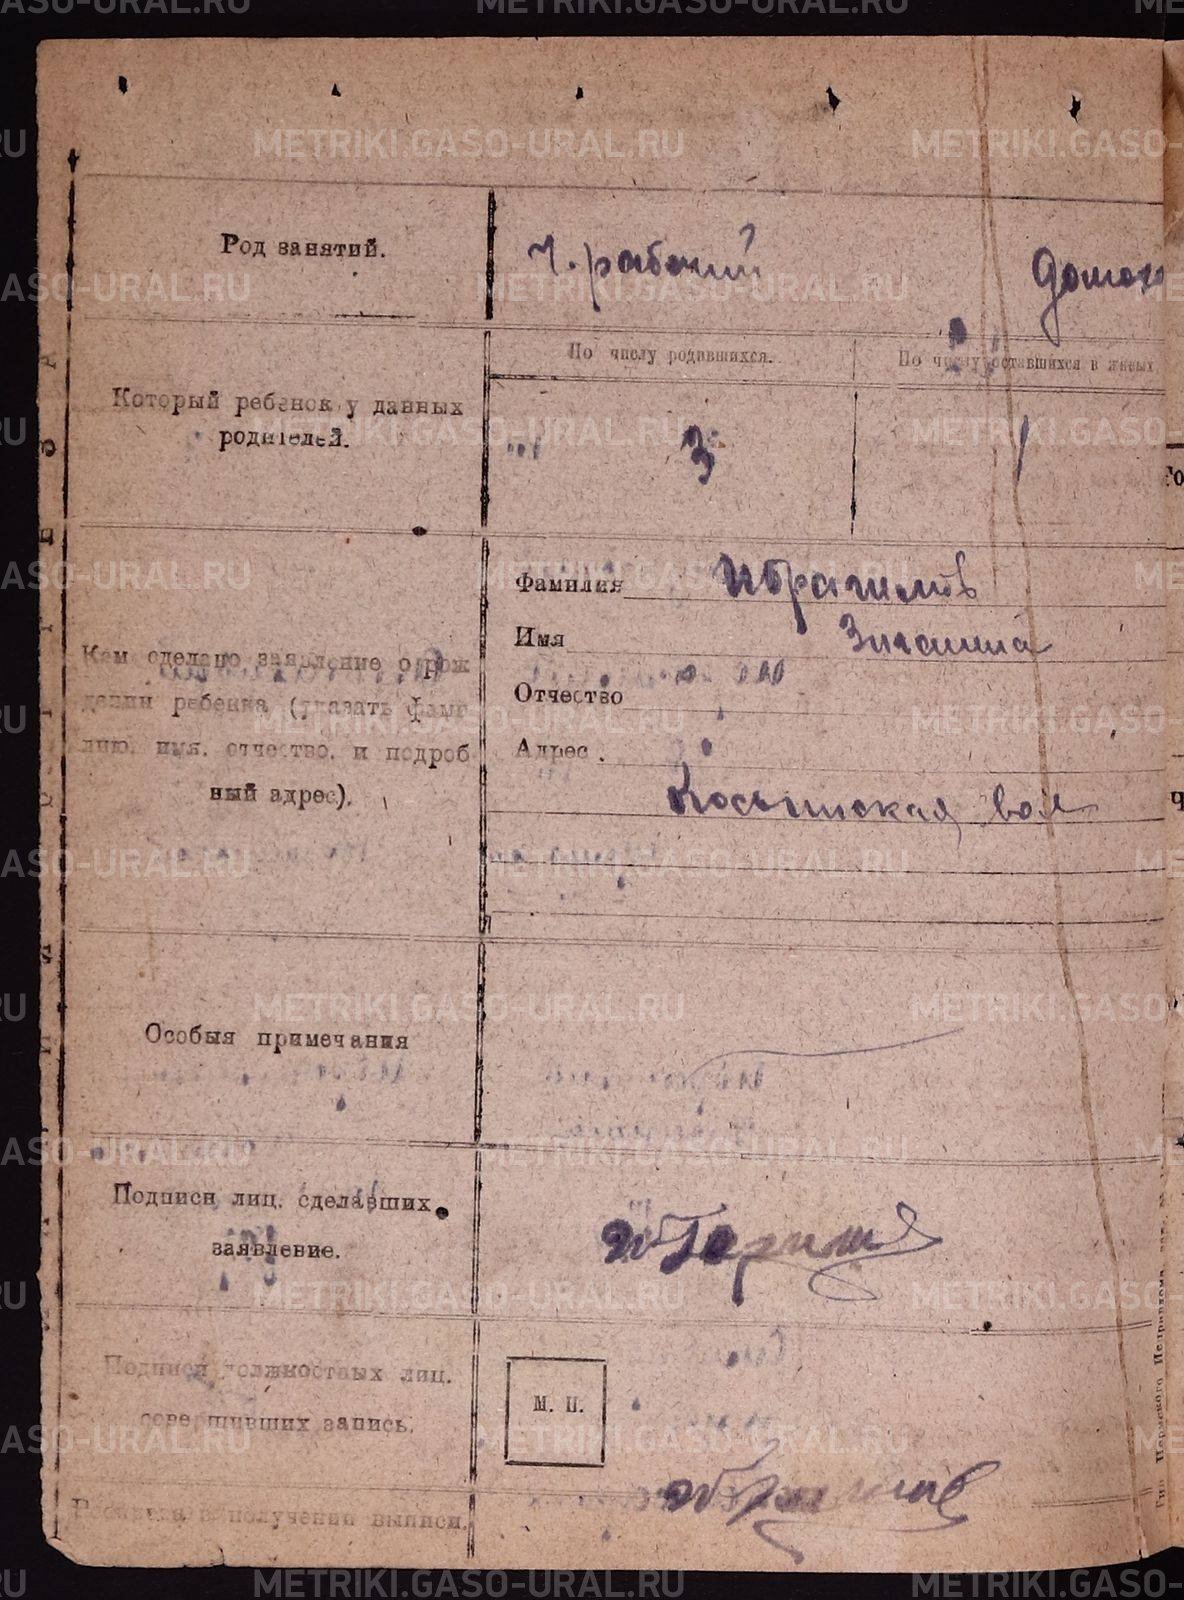 METRIKI.GASO-URAL.RU
Род занятий.
ч. рабочий
Домохо
По числу родившихся.
По числу оставшихся в живых
Который ребенок у данных
родителей.
3
1
Фамилия Ибрагимов
Имя Зиганша
Кем сделано заявление о рож
дении ребенка (указать фами
лию, имя, отчество, и подроб
ный адрес).
Отчество
Адрес.
вол
Особыя примечания
Подписи лиц, сделавших
заявление.
Подписи должностных лиц,
совершивших запись.
М. П.
Расписка в получении выписи.